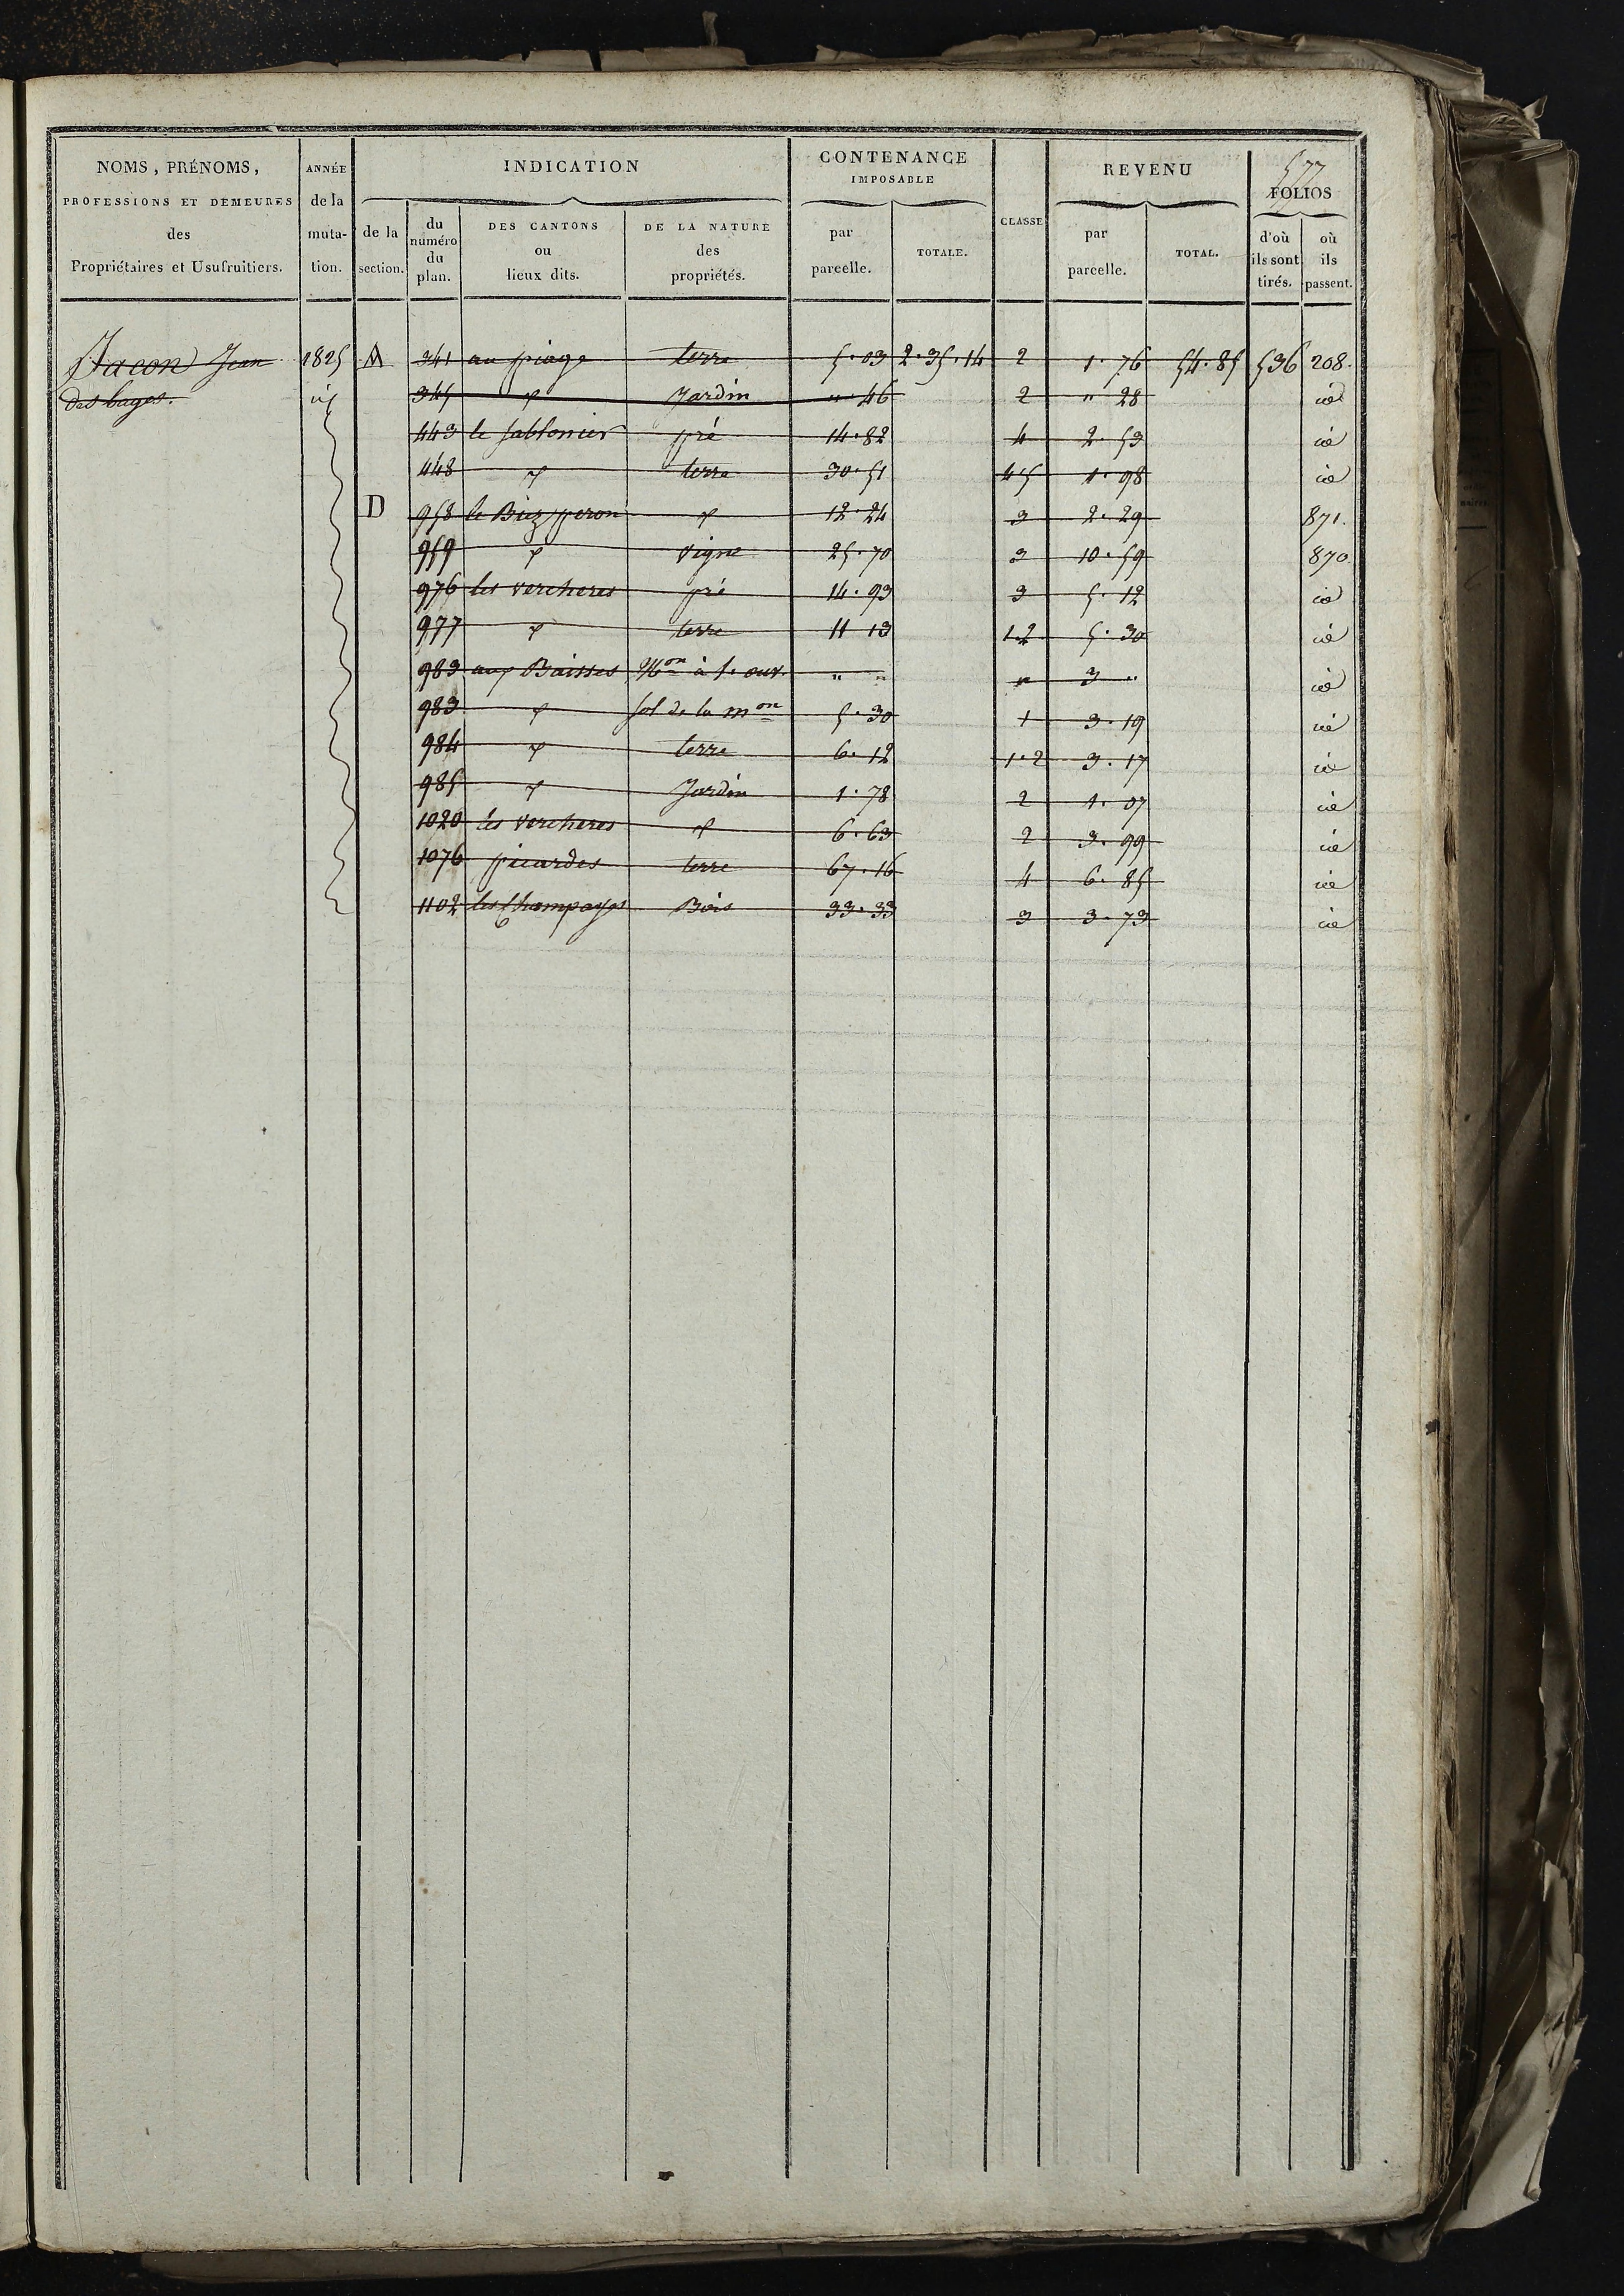 577
NOMS, PRÉNOMS, PROFESSIONS ET DEMEURES des Propriétaires et Usufruitiers.
ANNÉE de la muta-tion.
INDICATION
de la section.
du numéro du plan.
DES CANTONS ou lieux dits.
DE LA NATURE des propriétés.
CONTENANCE IMPOSABLE
par parcelle.
TOTALE.
CLASSE
REVENU
par parcelle.
TOTAL.
FOLIOS
d'où ils sont tirés.
où ils passent.
Jacon Jean 1825 A 341 au piage terre 5.03 2.35.14 2 1.76 54.85 536 208.
des bages. id 345 " Jardin ".46 2 " 28 id
443 le Sablonier pré 14.82 4 2.53 id
448 " terre 30.51 45 1.98 id
D 958 le Biez peron " 12.24 3 2.29 871.
959 " vigne 25.70 3 10.59 870.
976 les vercheres pré 14.93 3 5.12 id
977 " terre 11 13 1.2 5.30 id
983 aux Baisses Mon à 1. ouv. " " " 3 " id
983 " sol de la mon 5.30 1 3.19 id
984 " terre 6.12 1.2 3.17 id
985 " Jardin 1.78 2 1.07 id
1020 les vercheres " 6.63 2 3.99 id
1076 picardes terre 67.16 4 6.85 id
1102 les Champayes Bois 33.33 3 3.73 id